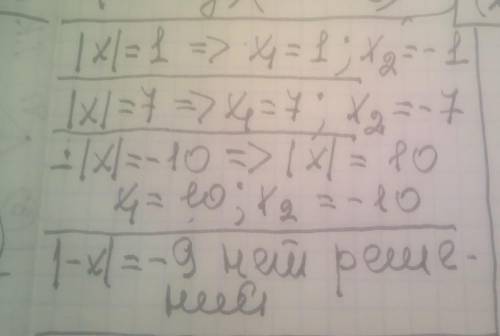 |x|=1 => x₁=1; x₂=-1
|x|=7 => x₁=7; x₂=-7
-|x|=-10 => |x|=10
x₁=10; x₂=-10
|-x|=-9 нет реше-
ний